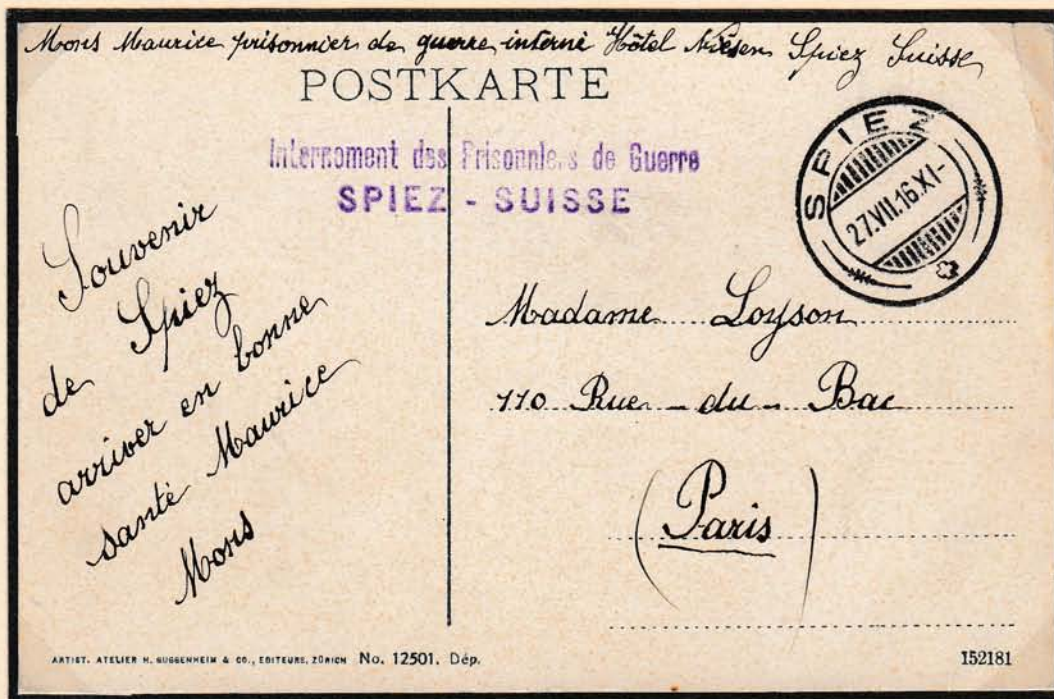 Mons Maurice prisonnier de guerre interné Hôtel Niesen Spiez Suisse
POSTKARTE
Internement des Prisonniers de Guerre
SPIEZ - SUISSE
SPIEZ
27.VII.16.XI-
Souvenir
de Spiez
arriver en bonne
santé Maurice
Mons
Madame Loyson
110 Rue - du - Bac
(Paris)
ARTIST. ATELIER H. GUGGENHEIM & CO., EDITEURS, ZÜRICH No. 12501. Dép.
152181